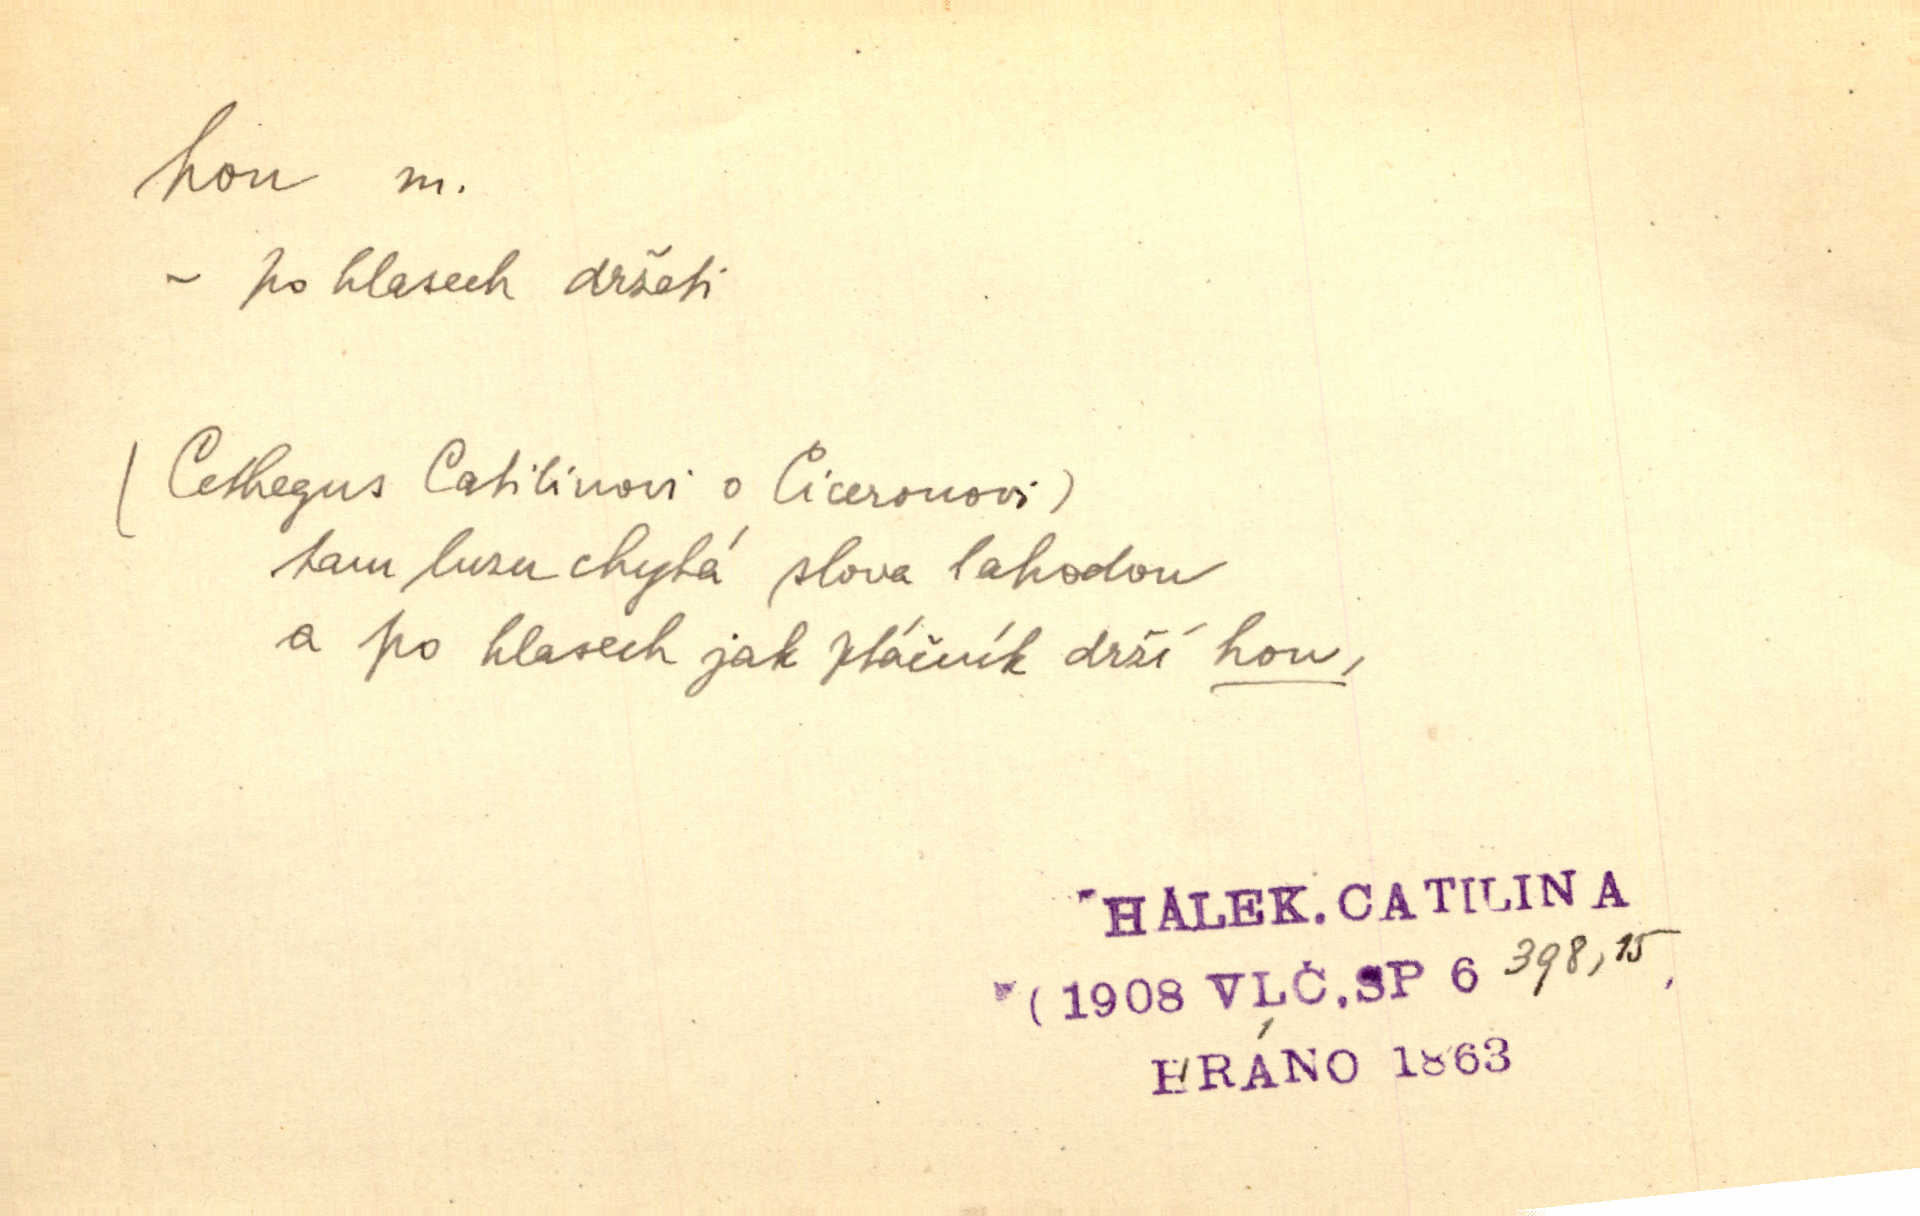 hon m.
~ po hlasech držeti
(Cethegus Catilinovi o Ciceronovi)
tam luzu chytá slova lahodou
a po hlasech jak ptáčník drží hon,
HÁLEK. CATILINA
(1908 VLČ.SP 6 398,15,
HRÁNO 1863